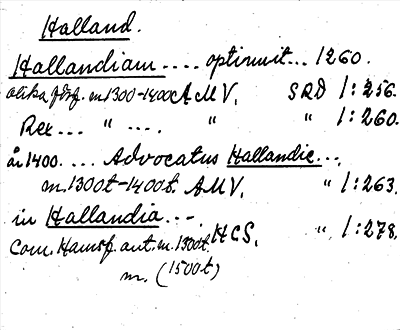 Halland.
Hallandiam .... optinuit... 1260.
olika förf. m. 1300-1400 AMV. SRD 1:256.
Rex... " .... " " 1:260.
år 1400. ... Advocatus Hallandie...
m. 1300t-1400t. AMV. " 1:263.
in Hallandia... HCS. " 1:278.
Com. Hamsf. ant. m. 1300t.
m. (1500t)